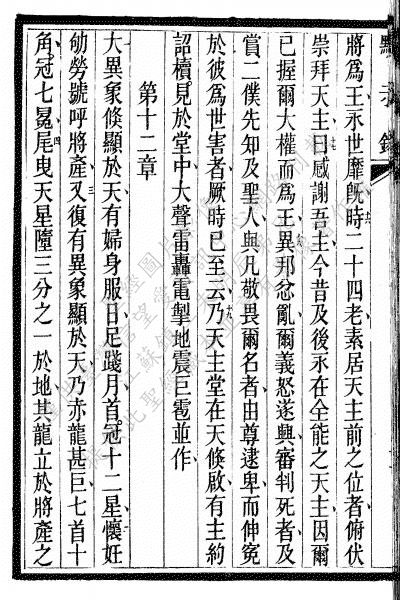 默示錄
將爲王永世靡旣時二十四老素居天主前之位者俯伏
崇拜天主曰感謝吾主今昔及後永在全能之天主因爾
已握爾大權而爲王異邦忿亂爾義怒遂興審判死者及
賞二僕先知及聖人與凡敬畏爾名者由尊逮卑而伸寃
於彼爲世害者厥時已至云乃天主堂在天倏啟有主約
詔櫝見於堂中大聲雷轟電掣地震巨雹並作
第十二章
大異象倏顯於天有婦身服日足踐月首冠十二星懷妊
劬勞號呼將產又復有異象顯於天乃赤龍甚巨七首十
角冠七冕尾曳天星隨三分之一於地其龍立於將產之